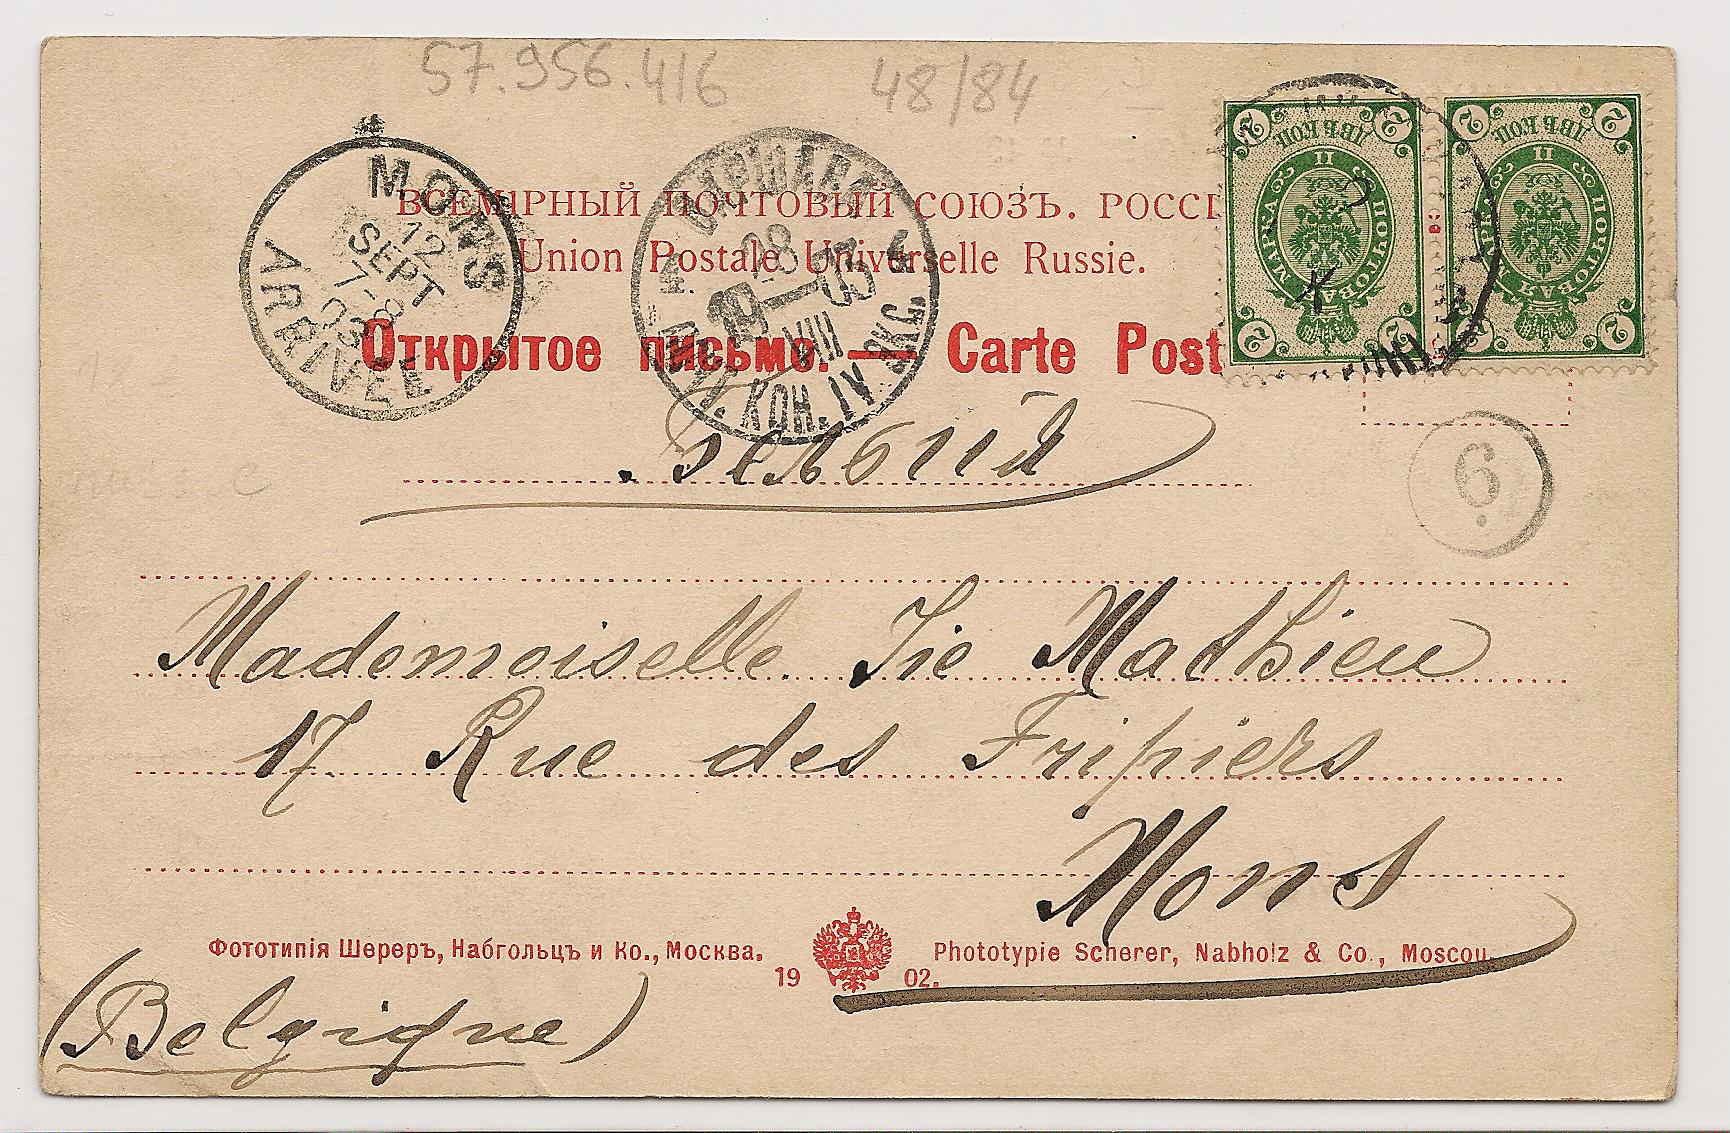 57.956.416 48/84
MONS
12
SEPT
7-8
03
ARRIVEE
28
1903
VIII
ВСЕМІРНЫЙ ПОЧТОВЫЙ СОЮЗЪ. РОССІ
Union Postale Universelle Russie.
Открытое письмо. — Carte Post
2 ДВѢ КОП 2
II
ПОЧТОВАЯ МАРКА
2 2
2 ДВѢ КОП 2
II
ПОЧТОВАЯ МАРКА
2 2
6
Бельгия
Mademoiselle Mathieu
17 Rue des Fripiers
Mons
Фототипія Шереръ, Набгольцъ и Ко., Москва. 1902. Phototypie Scherer, Nabholz & Co., Moscou.
(Belgique)